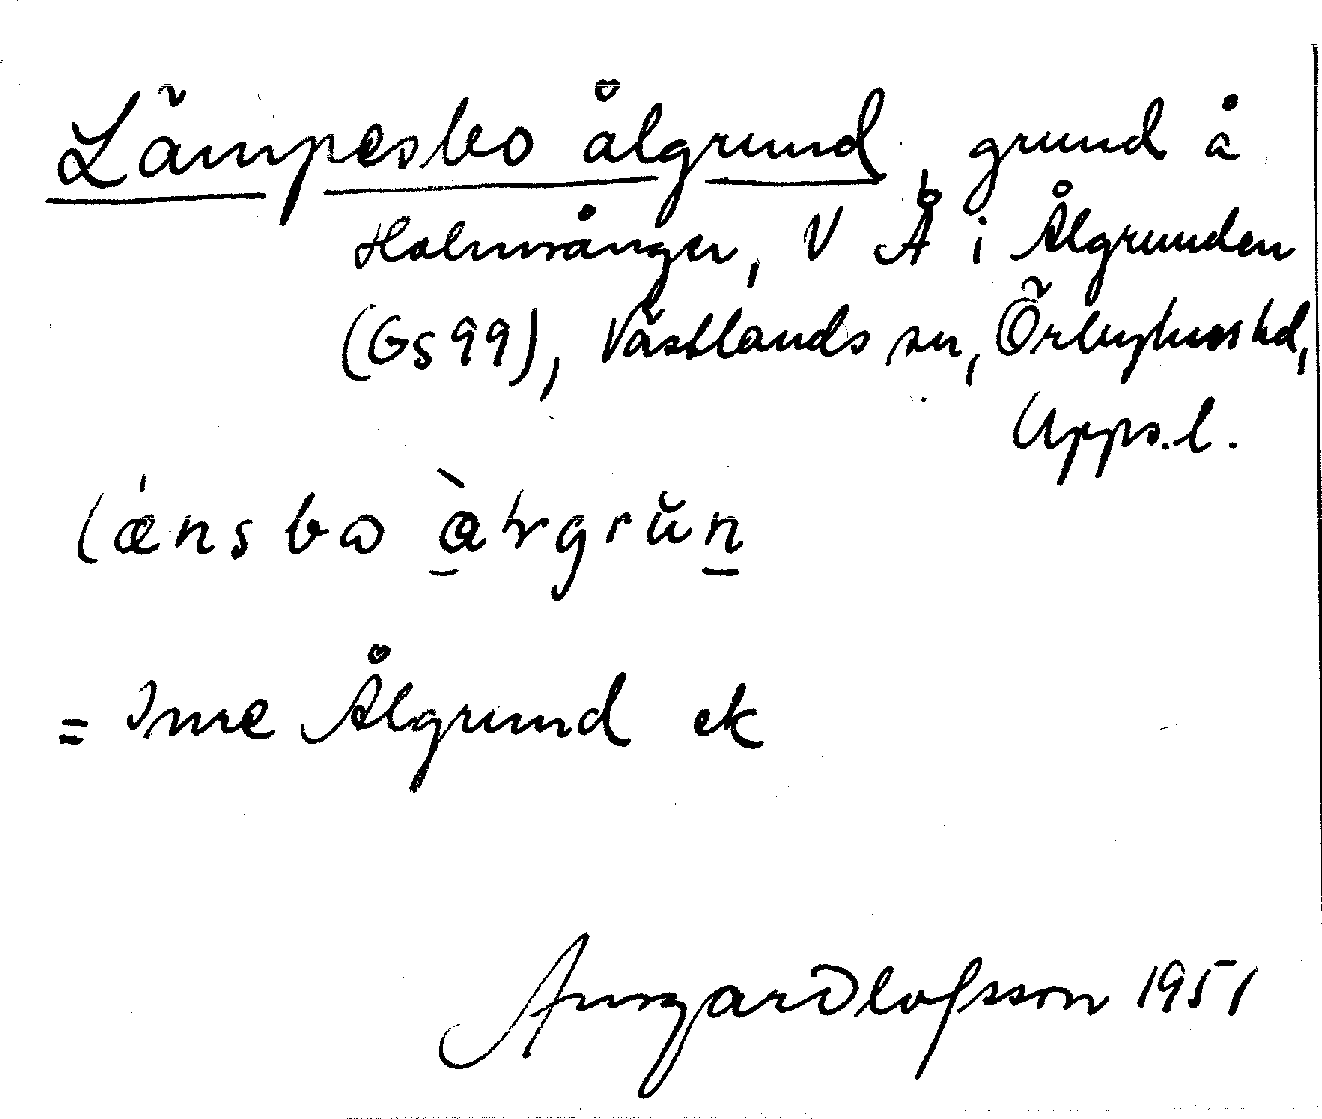 Lämpesbo ålgrund, grund å
Holmvånger, V Å i Ålgrunden
(Gs 99), Västlands sn, Örbyhus hd,
Upps.l.
= Inre Ålgrund ek
Ansgar Olofsson 1951